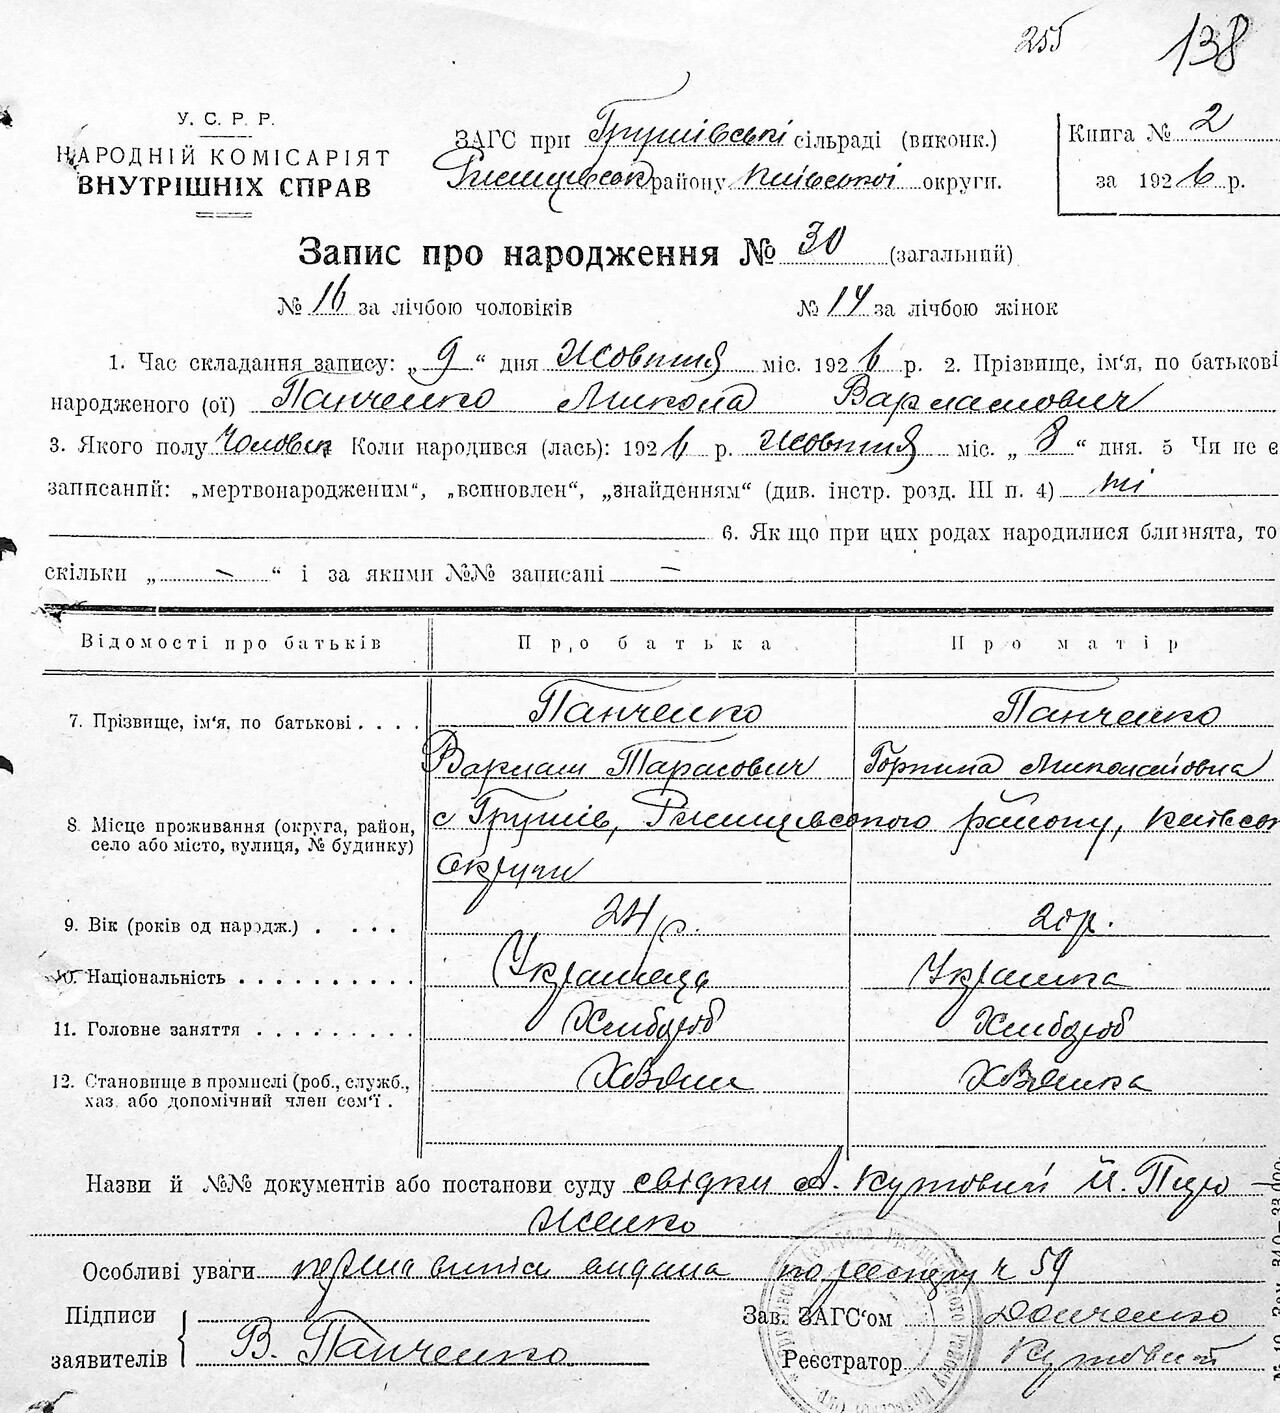 255 138
У. С. Р. Р.
НАРОДНІЙ КОМІСАРІЯТ
ВНУТРІШНІХ СПРАВ
ЗАГС при Грушівські сільраді (виконк.)
Ржищівськ району Київської округи.
Книга № 2
за 1926 р.
Запис про народження № 30 (загальний)
№ 16 за лічбою чоловіків № 14 за лічбою жінок
1. Час складання запису: „ 9 “ дня Жовтня міс. 1926 р. 2. Прізвище, ім'я, по батькові
народженого (ої) Панченко Микола Варламович
3. Якого полу Чоловік Коли народився (лась): 1926 р. Жовтня міс. „ 8 “ дня. 5 Чи не є
записаний: „мертвонародженим“, „вспновлен“, „знайденням“ (див. інстр. розд. III п. 4) ні
6. Як що при цих родах народилися близнята, то
скільки „ — “ і за якими №№ записані —
Відомості про батьків Про батька Про матір
7. Прізвище, ім'я, по батькові . . . . Панченко Панченко
Варлам Тарасович Горпина Миколаївна
8. Місце проживання (округа, район, с Грушів, Ржищівського району, Київсько
село або місто, вулиця, № будинку)
округи
9. Вік (років од народж.) . . . . 24 р. 20 р.
10. Національність . . . . . . . . . . Українець Українка
11. Головне заняття . . . . . . . . . Хлібороб Хлібороб
12. Становище в промислі (роб., служб., Хазяїн Хазяйка
хаз. або допомічний член сем'ї .
Назви й №№ документів або постанови суду свідки А. Кутовий Й. Підо-
женко
Особливі уваги перша випіс видана по реєстру ч 59
Підписи
заявителів В. Панченко
Зав. ЗАГС'ом Донченко
Реєстратор Кутовий